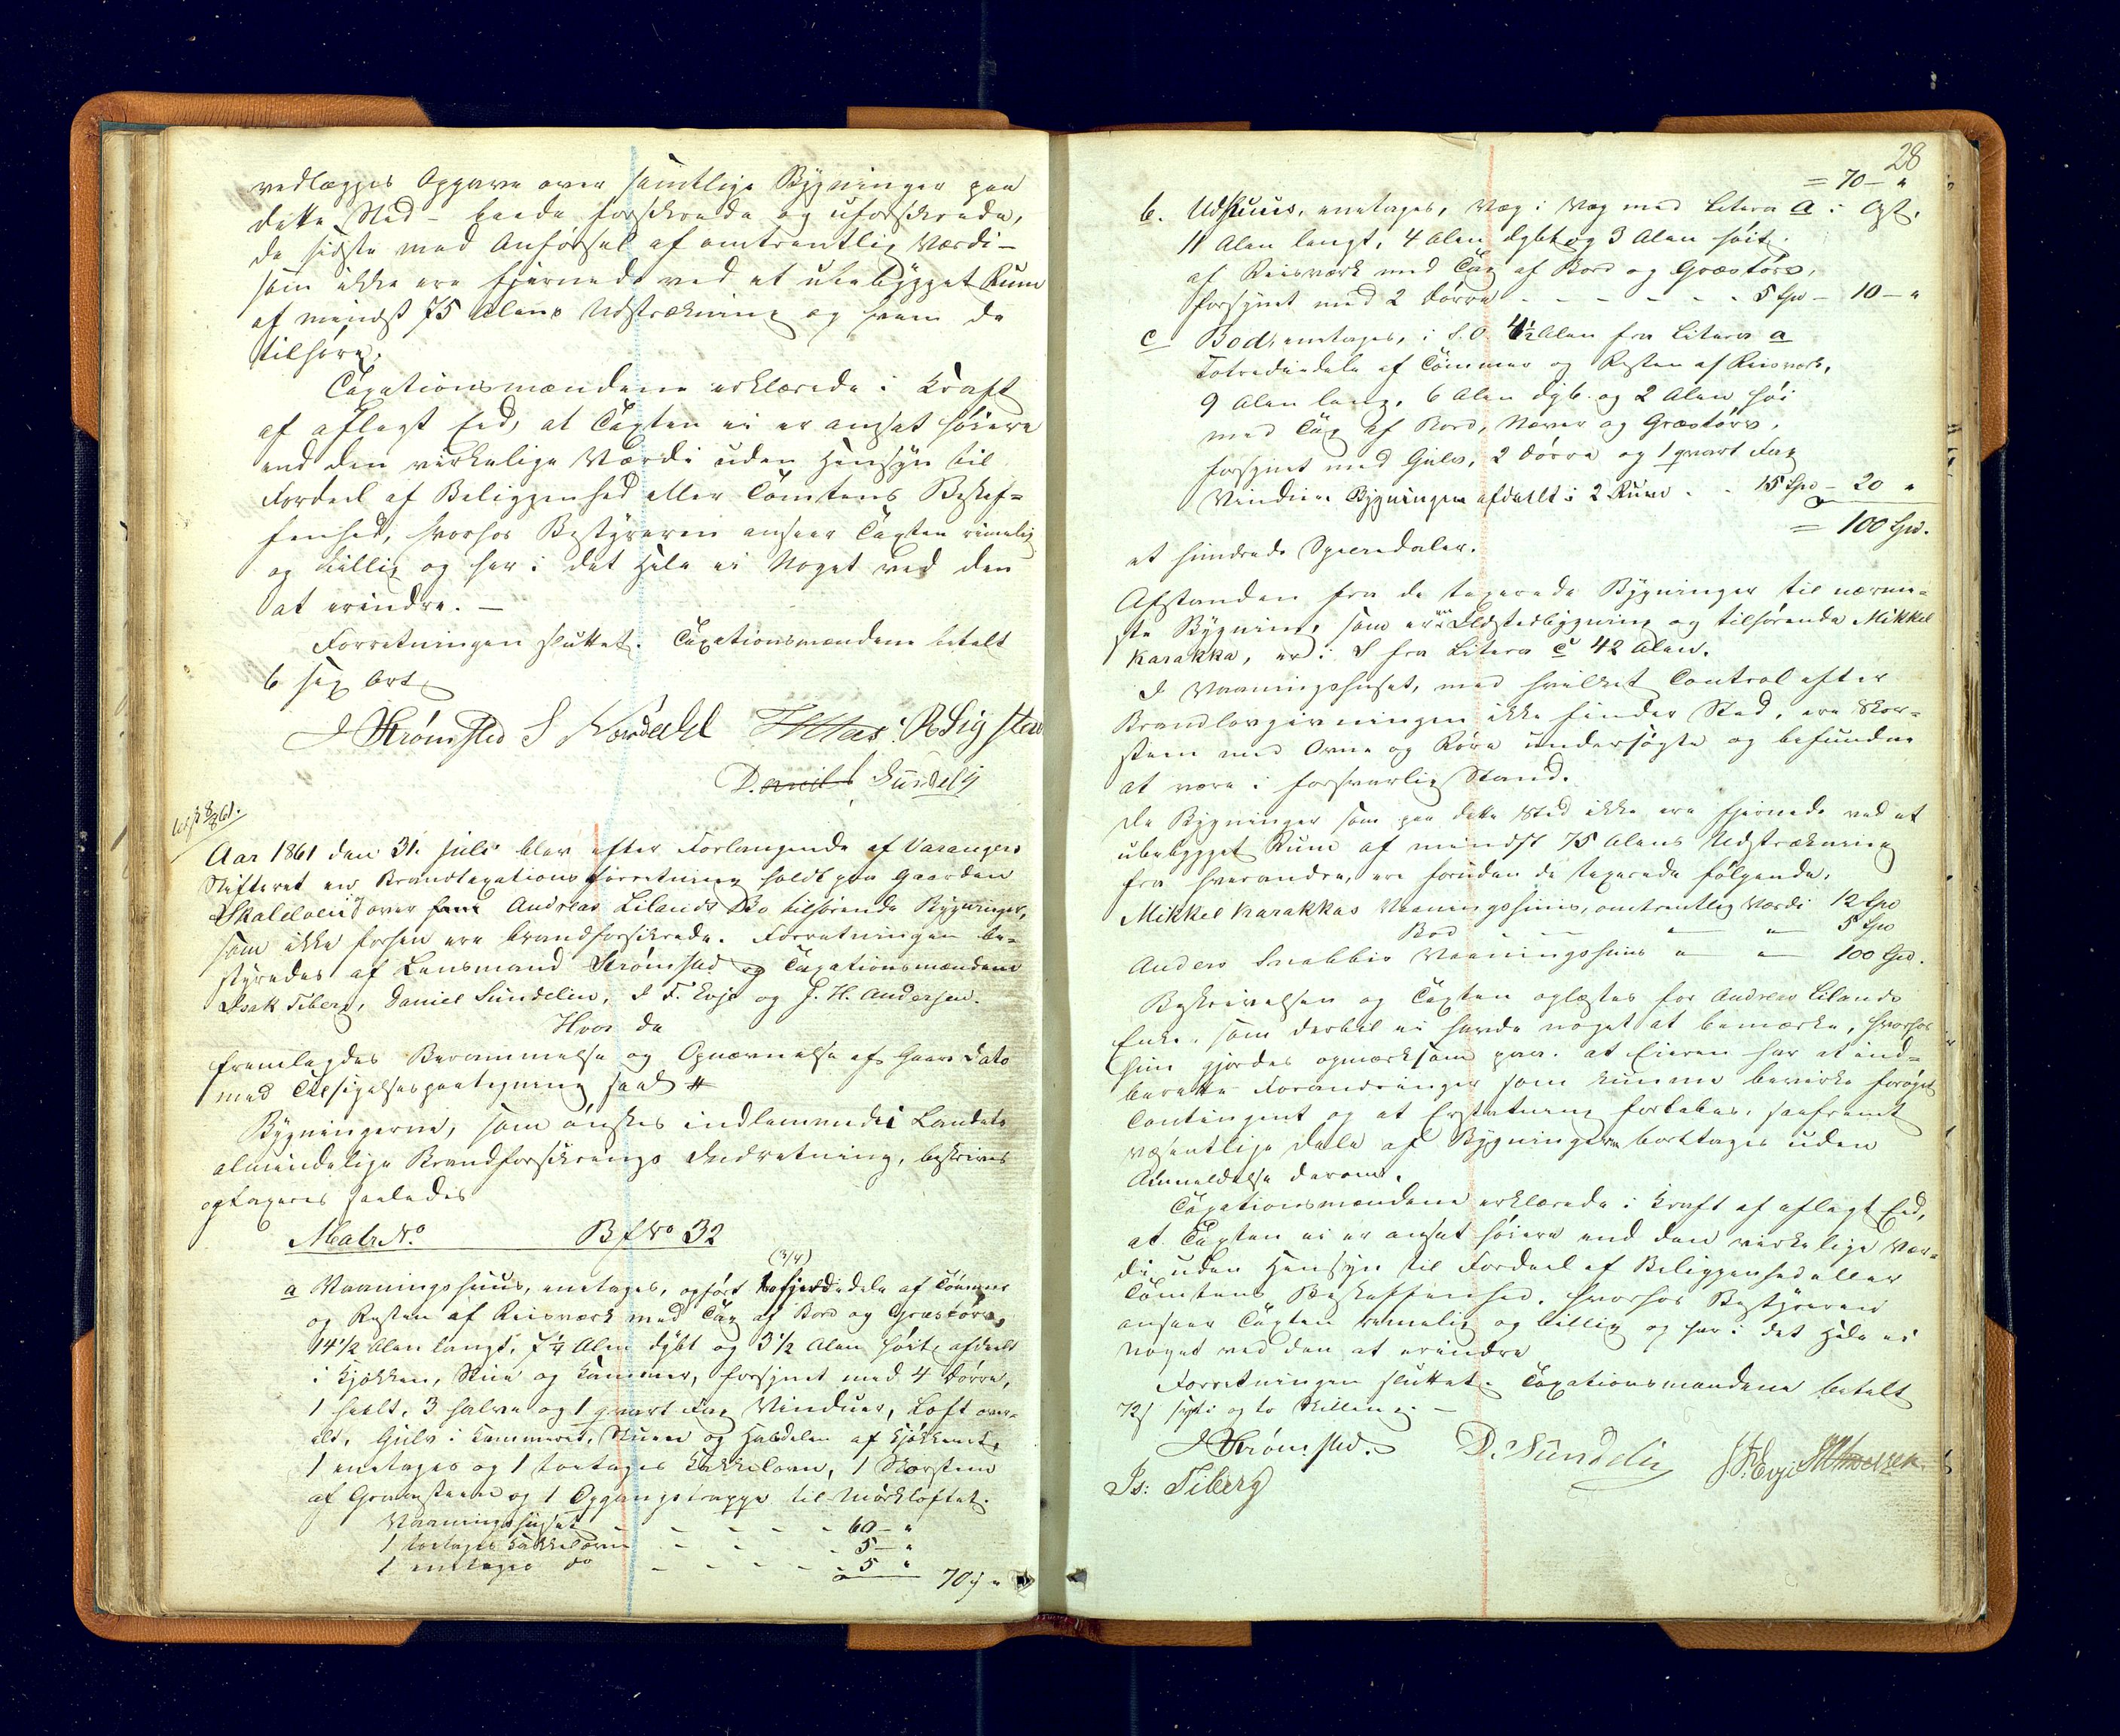 vedlægges Opgave over samtlige Bygninger paa
dette Sted – baade forsikrede og uforsikrede,
de sidste med Anførsel af omtrentlig Værdi –
som ikke ere fjernede ved et ubebygget Rum
af mindst 75 Alens Udstrækning og hvem de
tilhøre.
Taxationsmændene erklærede i Kraft
af aflagt Eed, at Taxten ei er ansat høiere
end den virkelige Værdi uden Hensyn til
Fordeel af Beliggenhed eller Tomtens Beskaf=
fenhed, hvorhos Bestyreren anseer Taxten rimelig
og billig og har i det Hele ei Noget ved den
at erindre. –
Forretningen sluttet. Taxationsmændene betalt
6 sex Ort
J Strømsted S Nordahl R Sigstad
Daniel Sundelin
8/8 61.
Aar 1861 den 31. Juli blev efter Forlangende af Varangers
Skifteret en Brandtaxationsforretning holdt paa Gaarden
over Andreas Lilands Bo tilhørende Bygninger,
som ikke forhen ere brandforsikrede. Forretningen be=
styredes af Lensmand Strømsted og Taxationsmændene
Isak Tiberg, Daniel Sundelin, J F. Evje og J. H. Andersen.
Hvor da
fremlagdes Berammelse og Opnævnelse af Gaars Dato
med Tilsigelsespaategning saal #
Bygningerne, som ønskes indlemmede i Landets
almindelige Brandforsikrings Indretning, beskrives
og taxeres saaledes
Matr.No. Bf No 32
(3/4)
a Vaaningshuus, eenetages, opført trefjerdedele af Tømmer
og Resten af Reisværk med Tag af Bord og Græstørv,
14 1/2 Alen langt, 7 1/4 Alen dybt og 3 1/2 Alen høit, afdeelt
i Kjøkken, Stue og Kammer, forsynet med 4 Dørre,
1 heelt, 3 halve og 1 qvart Fag Vinduer, Loft over=
alt, Gulv i Kammeret, Stuen og Halvdelen af Kjøkkenet,
1 eenetages og 1 toetages Kakkelovn, 1 Skorsteen
af Graasteen og 1 Opgangstrappe til Mørkloftet.
Vaaningshuset - - - - - 60 – "
1 toetages Kakkelovn - - - - 5 – "
1 eenetages do - - - - - 5 "
70 – "
28
= 70 – "
b. Udhuus, eenetages, Væg i Væg med Litera a i Øst,
11 Alen langt, 4 Alen dybt og 3 Alen høit
af Reisværk med Tag af Bord og Græstørv,
forsynet med 2 Dørre - - - - - - 5 Spd – 10 – "
c Bod, eenetages, i S.O. 4 1/2 Alen fra Litera a
Totrediedele af Tømmer og Resten af Reisværk,
9 Alen lang, 6 Alen dyb og 2 Alen høi
med Tag af Bord, Næver og Græstørv,
forsynet med Gulv, 2 Dørre og 1 qvart Fag
Vindue. Bygningen afdeelt i 2 Rum - - 15 Spd – 20 "
= 100 Spd.
et hundrede Speciedaler.
Afstanden fra de taxerede Bygninger til nærme=
ste Bygning, som er en Ildstedbygning og tilhørende Mikkel
Karakka, er i S fra Litera c 42 Alen.
I Vaaningshuset, med hvilket Control efter
Brandlovgivningen ikke finder Sted, ere Skor=
steen med Ovne og Røre undersøgte og befundne
at være i forsvarlig Stand.
De Bygninger som paa dette Sted ikke ere fjernede ved et
ubebygget Rum af mindst 75 Alens Udstrækning
fra hverandre, ere foruden de taxerede følgende.
Mikkel Karakkas Vaaningshuus, omtrentlig Værdi 12 Spd
Bod - - " " 5 Spd
Anders Vaaningshuus " " 100 Spd.
Beskrivelsen og Taxten oplæstes for Andreas Lilands
Enke, som dertil ei havde noget at bemærke, hvorhos
hun gjordes opmærksom paa, at Eieren har at ind=
berette Forandringer som kunne bevirke forøget
Contingent og at Erstatning fortabes, saafremt
væsentlige Dele af Bygningerne borttages uden
Anmeldelse derom.
Taxationsmændene erklærede i Kraft af aflagt Eed,
at Taxten ei er ansat høiere end den virkelige Vær=
di uden Hensyn til Fordeel af Beliggenhed eller
Tomtens Beskaffenhed, hvorhos Bestyreren
anseer Taxten rimelig og billig og har i det Hele ei
noget ved den at erindre
Forretningen sluttet. Taxationsmændene betalt
72 s sytti og to Skilling. –
J Strømsted. D. Sundelin J F. Evje
Is: Tiberg